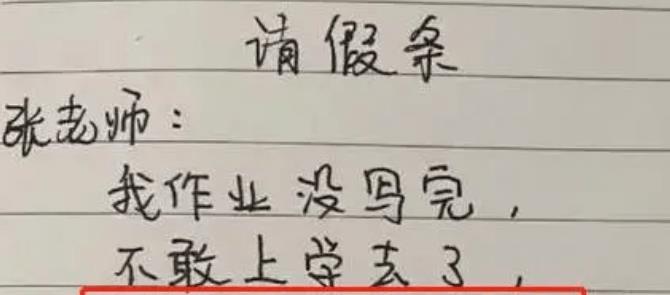 请假条
张老师：
我作业没写完，
不敢上学去了，